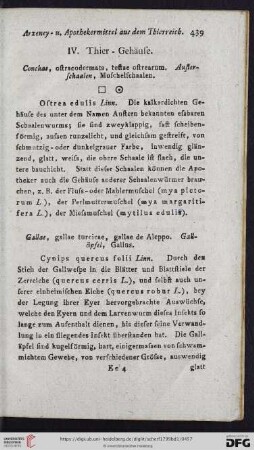 Arzeney- u. Apothekermittel aus dem Thierreich. 439
IV. Thier-Gehäuse.
Conchae, ostreodermata, testae ostrearum. Auster-
schaalen, Muschelschaalen.
Ostrea edulis Linn. Die kalkerdichten Ge-
häuse des unter dem Namen Austern bekannten eßbaren
Schaalenwurms; sie sind zweyklappig, fast scheiben-
förmig, aussen runzelicht, und gleichsam gestreift, von
schmutzig- oder dunkelgrauer Farbe, inwendig glän-
zend, glatt, weiß, die obere Schaale ist flach, die un-
tere bauchicht. Statt dieser Schaalen können die Apo-
theker auch die Gehäuse anderer Schaalenwürmer brau-
chen, z. B. der Fluß- oder Mahlermuschel (mya picto-
rum L.), der Perlenmuttermuschel (mya margariti-
fera L.), der Miesmuschel (mytilus edulis).
Gallae, gallae turcicae, gallae de Aleppo. Gall-
äpfel, Gallus.
Cynips quercus folii Linn. Durch den
Stich der Gallwespe in die Blätter und Blattstiele der
Zerreiche (quercus cerris L.), und selbst auch un-
serer einheimischen Eiche (quercus robur L.), bey
der Legung ihrer Eyer hervorgebrachte Auswüchse,
welche den Eyern und dem Larvenwurm dieses Insekts so
lange zum Aufenthalt dienen, bis dieser seine Verwand-
lung in ein fliegendes Insekt überstanden hat. Die Gall-
äpfel sind kugelförmig, hart, einigermassen von schwam-
michtem Gewebe, von verschiedener Größe, auswendig
Ee 4 glatt
UNIVERSITÄTS-
BIBLIOTHEK
HEIDELBERG
Gefördert durch
DFG